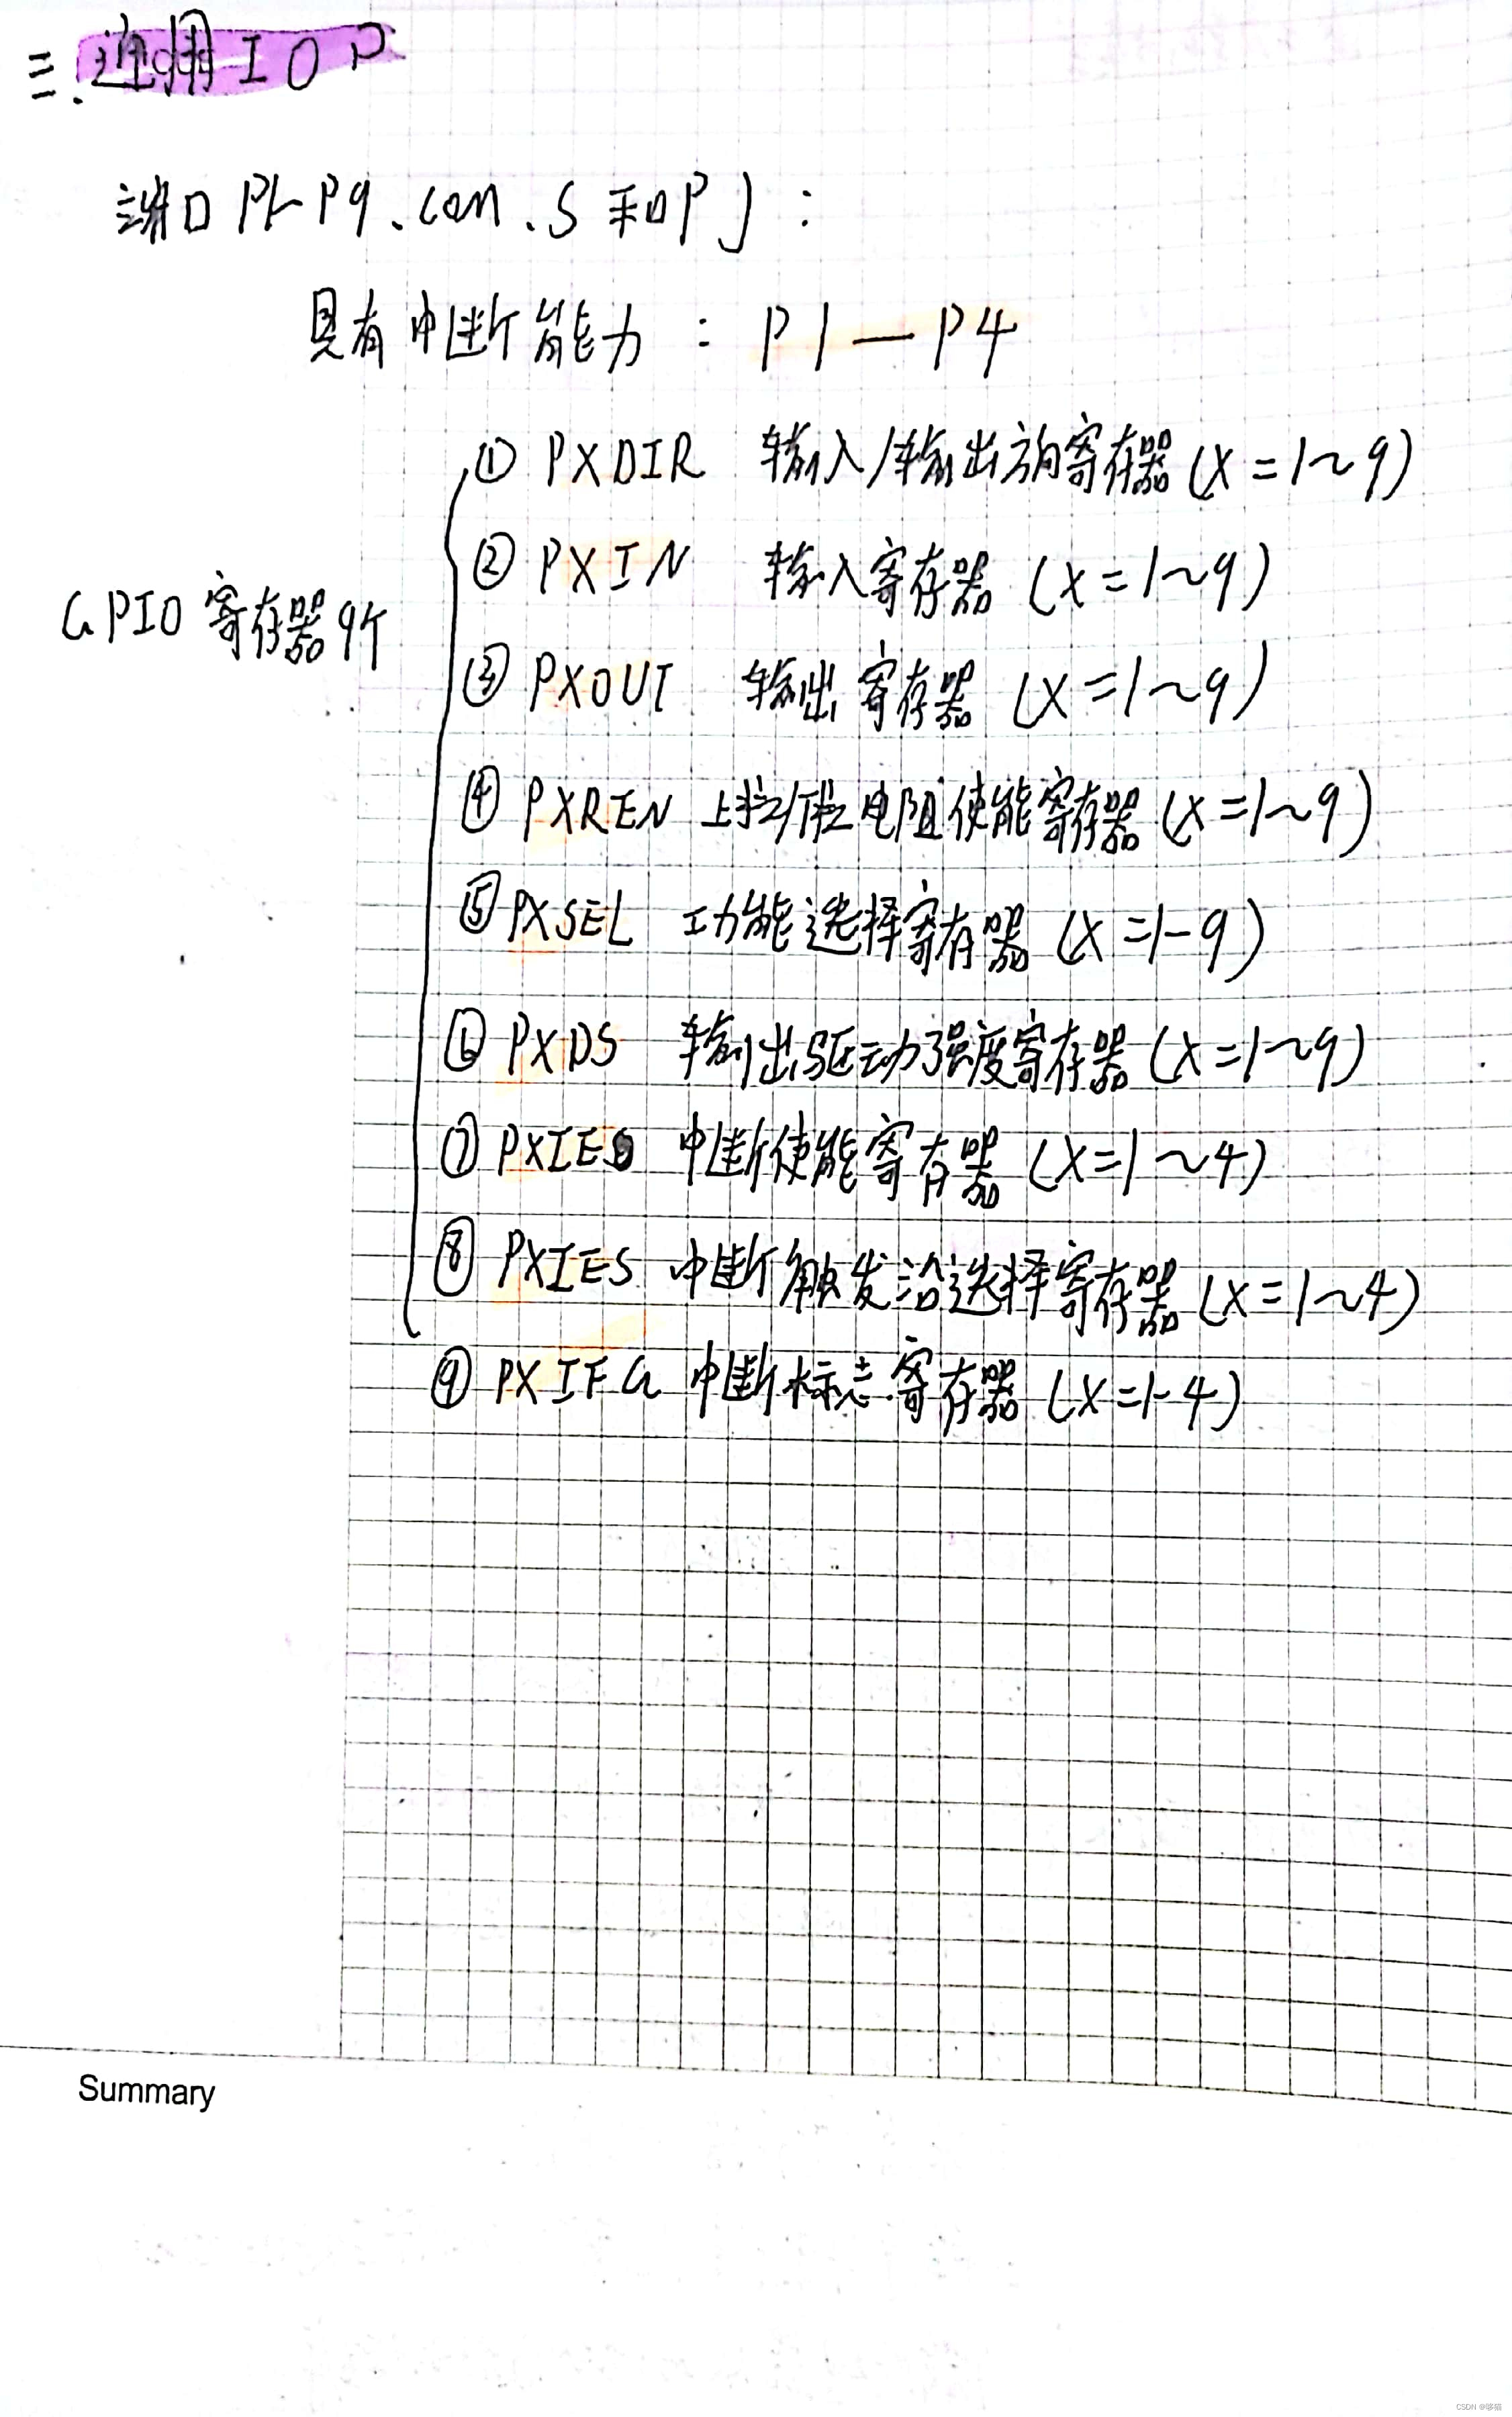 三. 通用 I O P
端口 P1-P9、com、S 和 PJ：
具有中断能力：P1—P4
GPIO 寄存器 9个
① PXDIR 输入/输出方向寄存器 (X=1~9)
② PXIN 输入寄存器 (X=1~9)
③ PXOUT 输出寄存器 (X=1~9)
④ PXREN 上拉/下拉电阻使能寄存器 (X=1~9)
⑤ PXSEL 功能选择寄存器 (X=1-9)
⑥ PXDS 输出驱动强度寄存器 (X=1~9)
⑦ PXIE 中断使能寄存器 (X=1~4)
⑧ PXIES 中断触发沿选择寄存器 (X=1~4)
⑨ PXIFG 中断标志寄存器 (X=1-4)
Summary
CSDN @哆猫